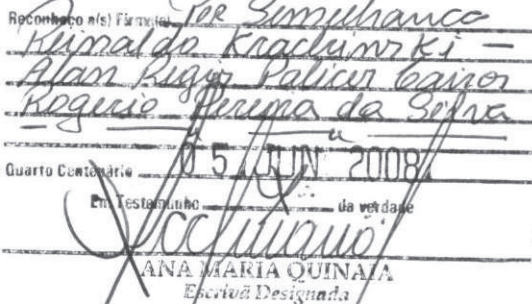 Reconheço a(s) Firma(s) Por Semelhança
Reinaldo Krachinski —
Alan Regis Palicer Cairos
Rogerio Pereira da Silva
Quarto Centenário 05 JUN 2008
Em Testemunho da verdade
ANA MARIA QUINAIA
Escrivã Designada